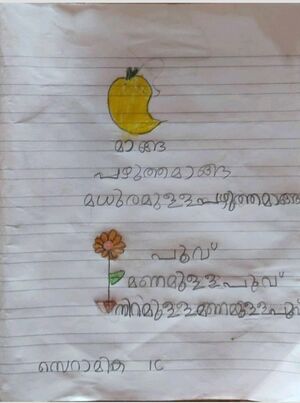 മാങ്ങ
പഴുത്തമാങ്ങ
മധുരമുള്ളപഴുത്തമാങ്ങ
പൂവ്
മണമുള്ളപൂവ്
നിറമുള്ളമണമുള്ളപൂ
സെറാമിക 1C